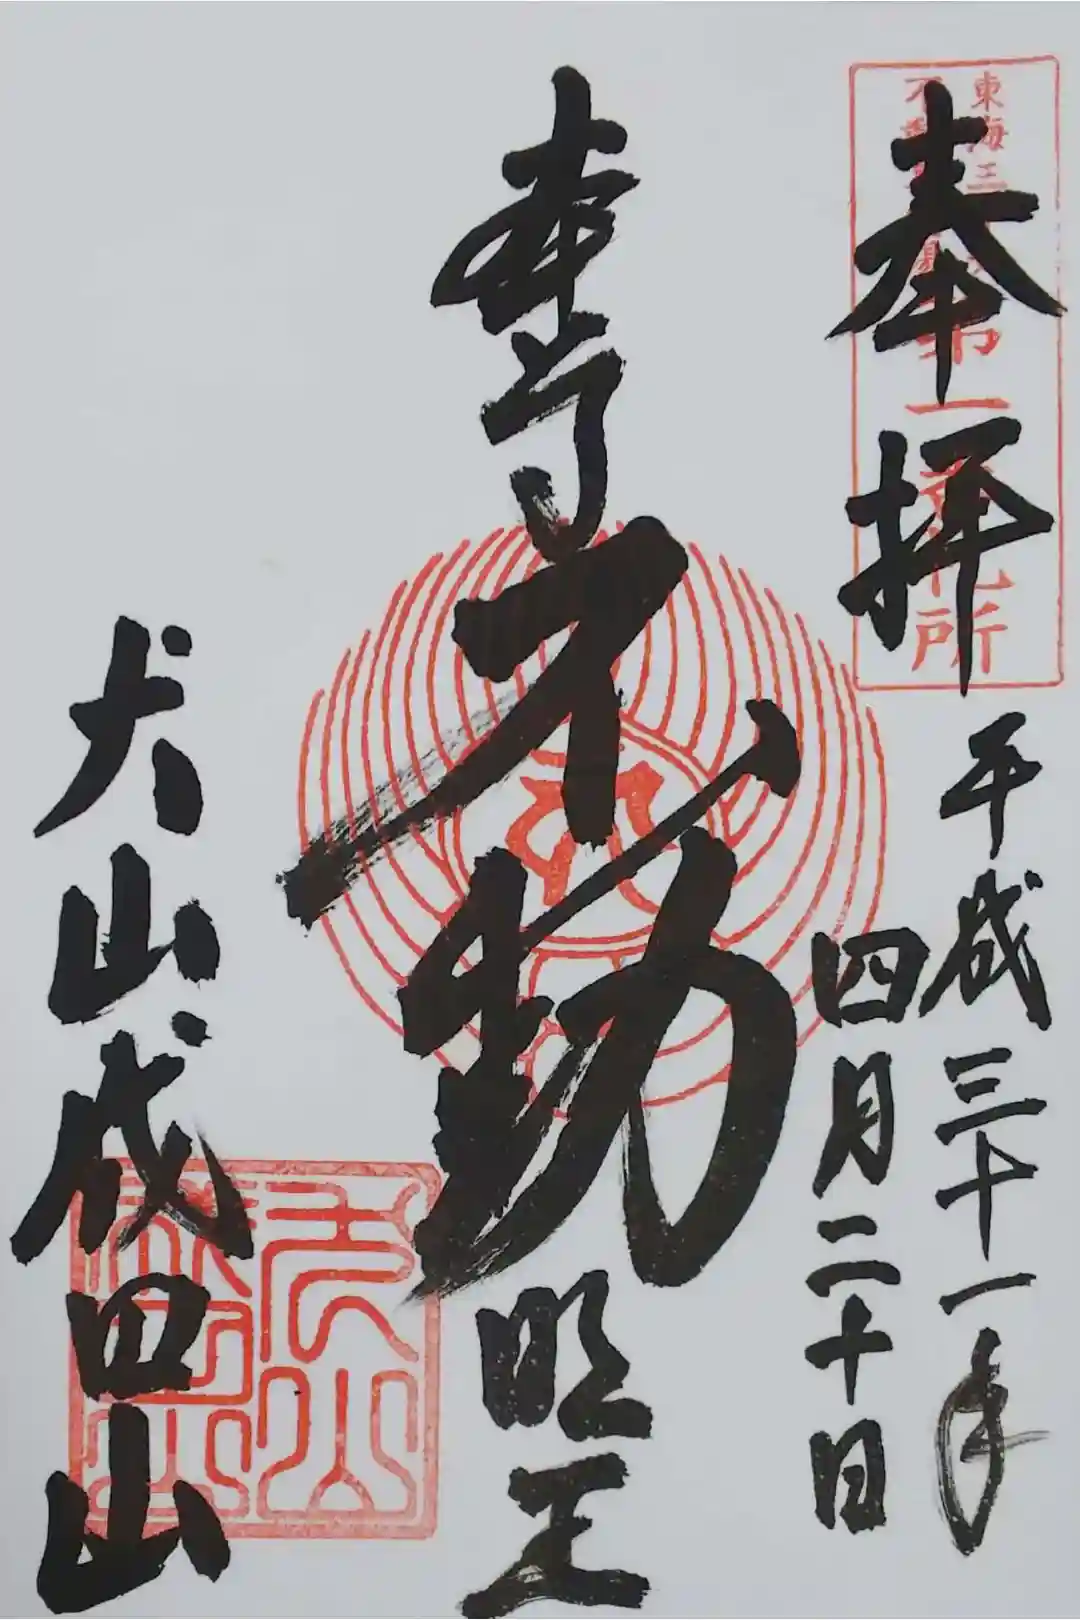 東海三
不動
第一番札所
奉拝
平成三十一年
四月二十日
本尊不動明王
犬山成田山